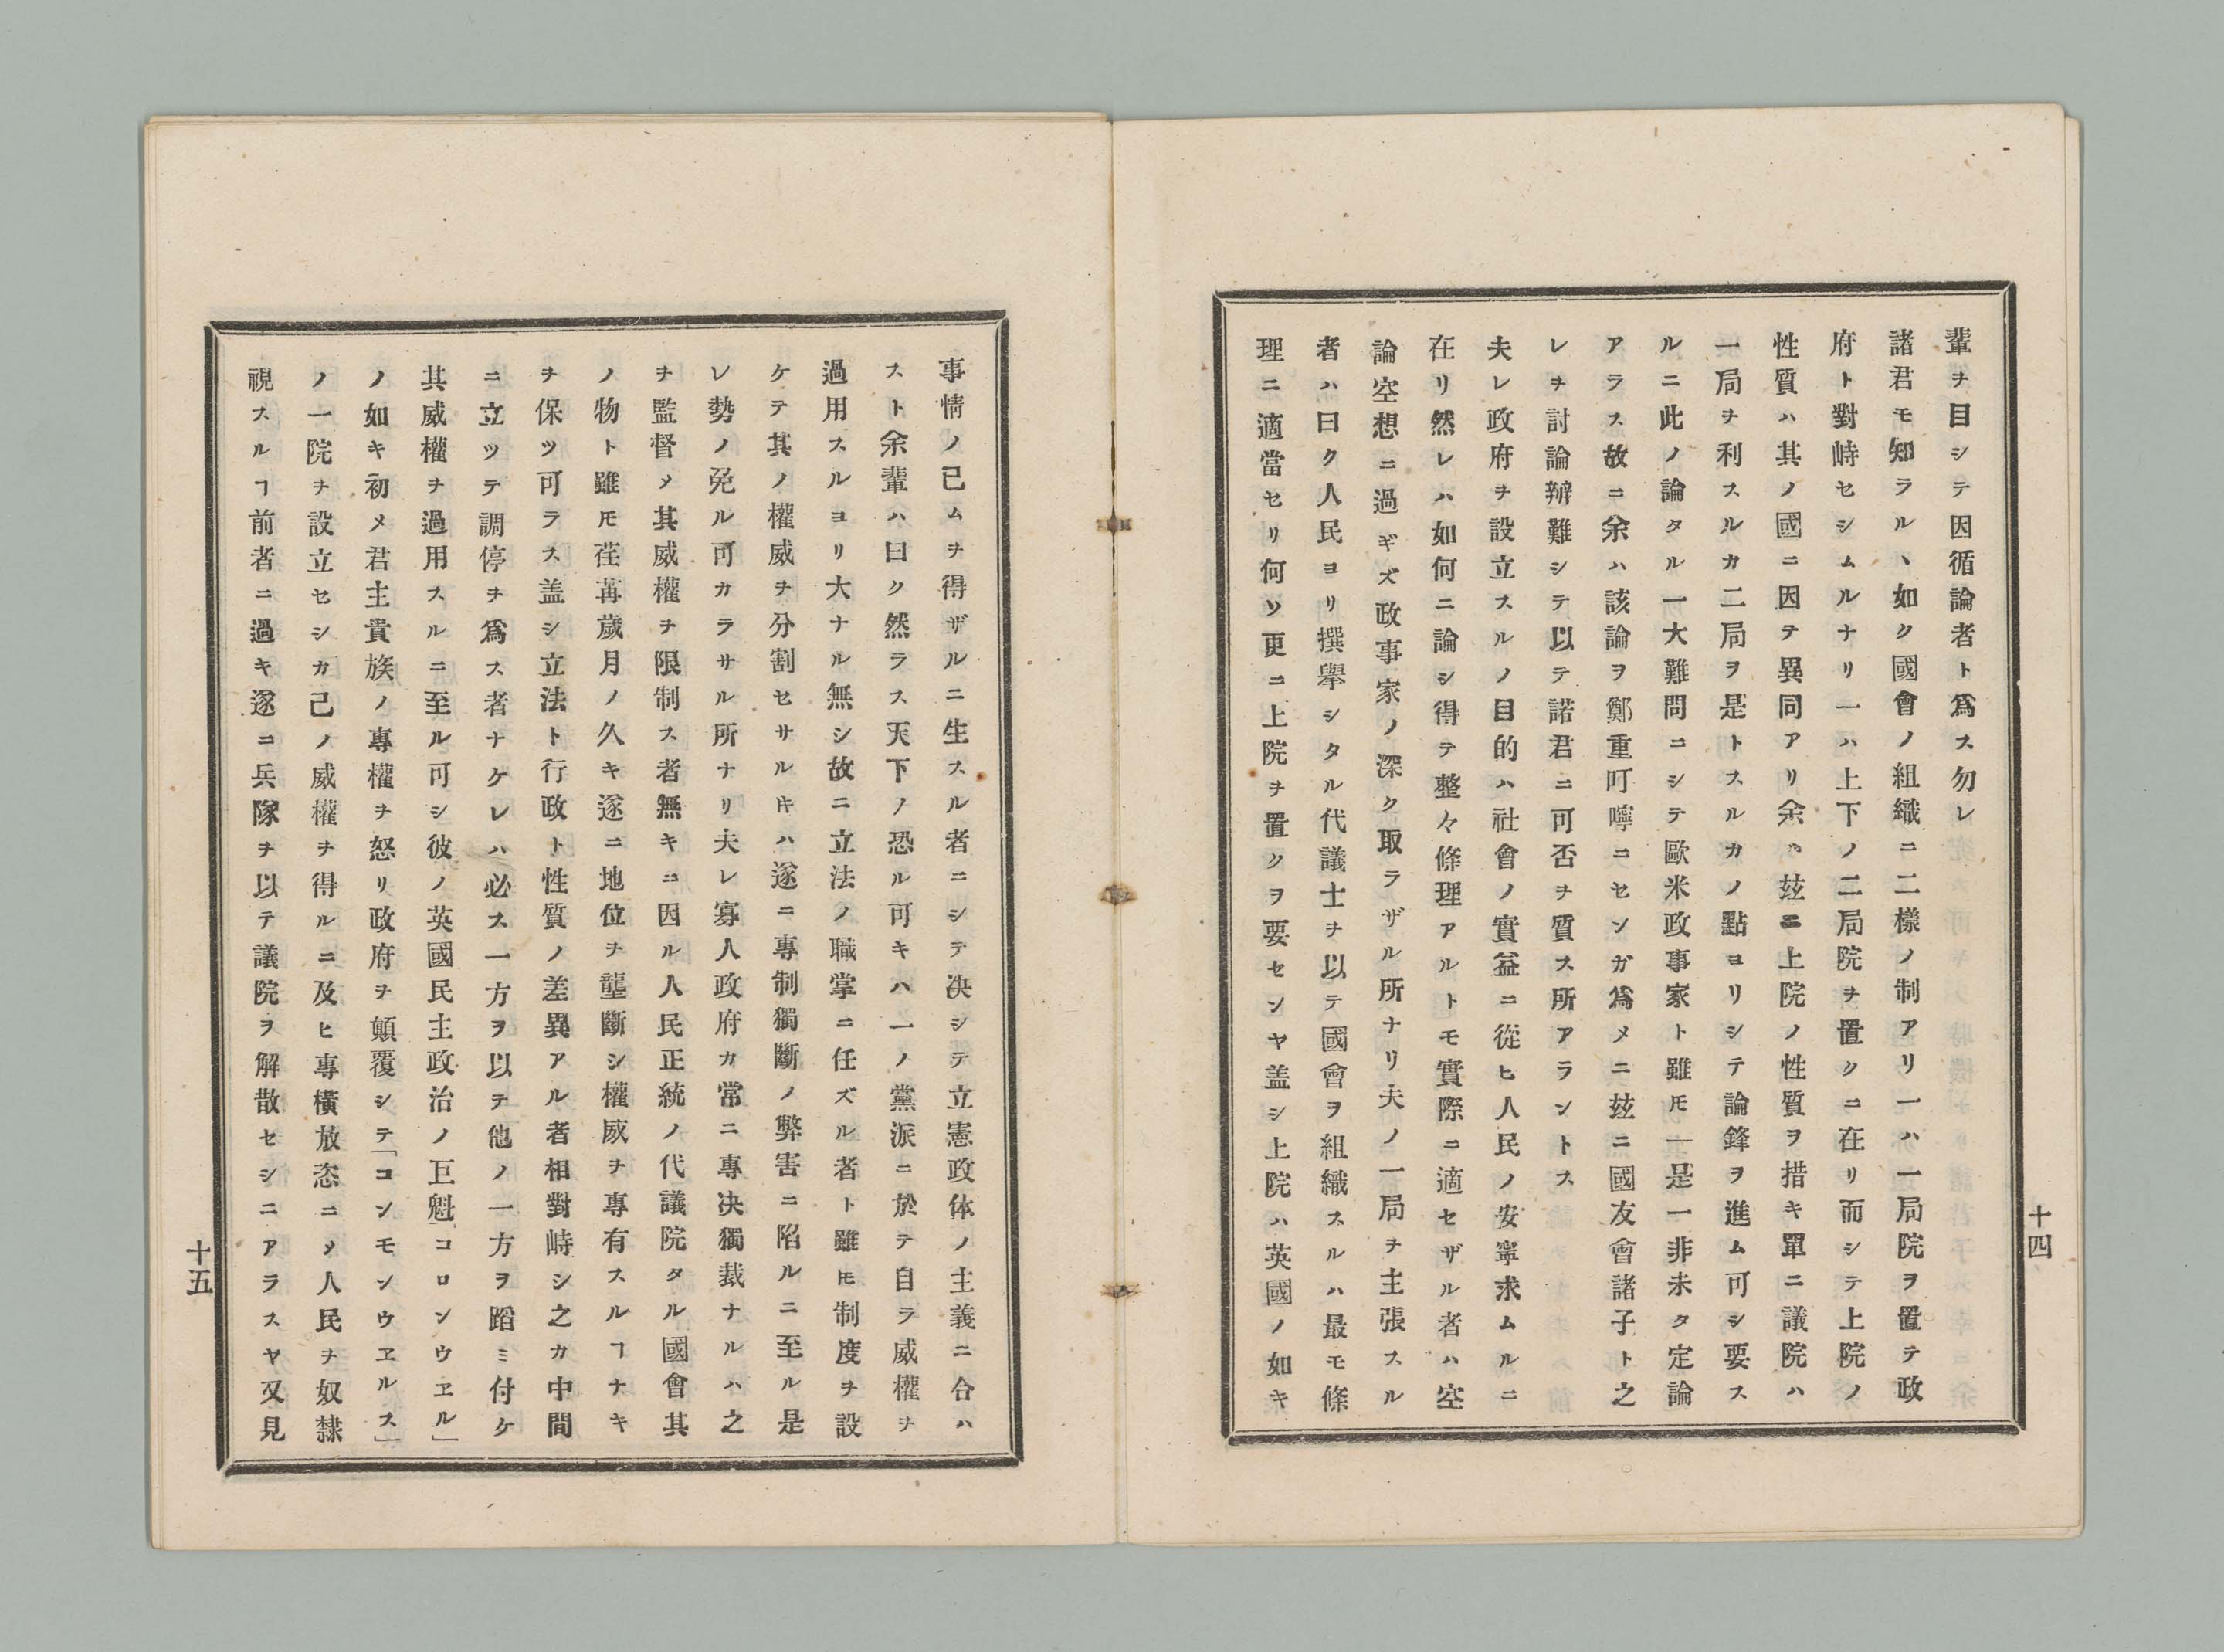 十四
輩ヲ目シテ因循論者ト爲ス勿レ
諸君モ知ラルヽ如ク國會ノ組織ニ二樣ノ制アリ一ハ一局院ヲ置テ政
府ト對峙セシムルナリ一ハ上下ノ二局院ヲ置クニ在リ而シテ上院ノ
性質ハ其ノ國ニ因テ異同アリ余ハ玆ニ上院ノ性質ヲ措キ單ニ議院ハ
一局ヲ利スルカ二局ヲ是トスルカノ點ヨリシテ論鋒ヲ進ム可シ要ス
ルニ此ノ論タル一大難問ニシテ歐米政事家ト雖モ一是一非未タ定論
アラス故ニ余ハ該論ヲ鄭重叮嚀ニセンガ爲メニ玆ニ國友會諸子ト之
レヲ討論辯難シテ以テ諾君ニ可否ヲ質ス所アラントス
夫レ政府ヲ設立スルノ目的ハ社會ノ實益ニ從ヒ人民ノ安寧求ムルニ
在リ然レハ如何ニ論シ得テ整々條理アルトモ實際ニ適セザル者ハ空
論空想ニ過ギズ政事家ノ深ク取ラザル所ナリ夫ノ一局ヲ主張スル
者ハ曰ク人民ヨリ撰擧シタル代議士ヲ以テ國會ヲ組織スルハ最モ條
理ニ適當セリ何ソ更ニ上院ヲ置クヲ要センヤ盖シ上院ハ英國ノ如キ
事情ノ已ムヲ得ザルニ生スル者ニシテ决シテ立憲政体ノ主義ニ合ハ
スト余輩ハ曰ク然ラス天下ノ恐ル可キハ一ノ黨派ニ於テ自ラ威權ヲ
過用スルヨリ大ナル無シ故ニ立法ノ職掌ニ任ズル者ト雖モ制度ヲ設
ケテ其ノ權威ヲ分割セサルキハ遂ニ專制獨斷ノ弊害ニ陷ルニ至ル是
レ勢ノ免ル可カラサル所ナリ夫レ寡人政府カ常ニ專决獨裁ナルハ之
ヲ監督メ其威權ヲ限制ス者無キニ因ル人民正統ノ代議院タル國會其
ノ物ト雖モ荏苒歲月ノ久キ遂ニ地位ヲ壟斷シ權威ヲ專有スルヿナキ
ヲ保ツ可ラス盖シ立法ト行政ト性質ノ差異アル者相對峙シ之カ中間
ニ立ツテ調停ヲ爲ス者ナケレハ必ス一方ヲ以テ他ノ一方ヲ蹈ミ付ケ
其威權ヲ過用スルニ至ル可シ彼ノ英國民主政治ノ巨魁「コロンウヱル」
ノ如キ初メ君主貴族ノ專權ヲ怒リ政府ヲ顚覆シテ「コンモンウヱルス」
ノ一院ヲ設立セシカ己ノ威權ヲ得ルニ及ヒ專橫放恣ニメ人民ヲ奴隸
視スルヿ前者ニ過キ遂ニ兵隊ヲ以テ議院ヲ解散セシニアラスヤ又見
十五